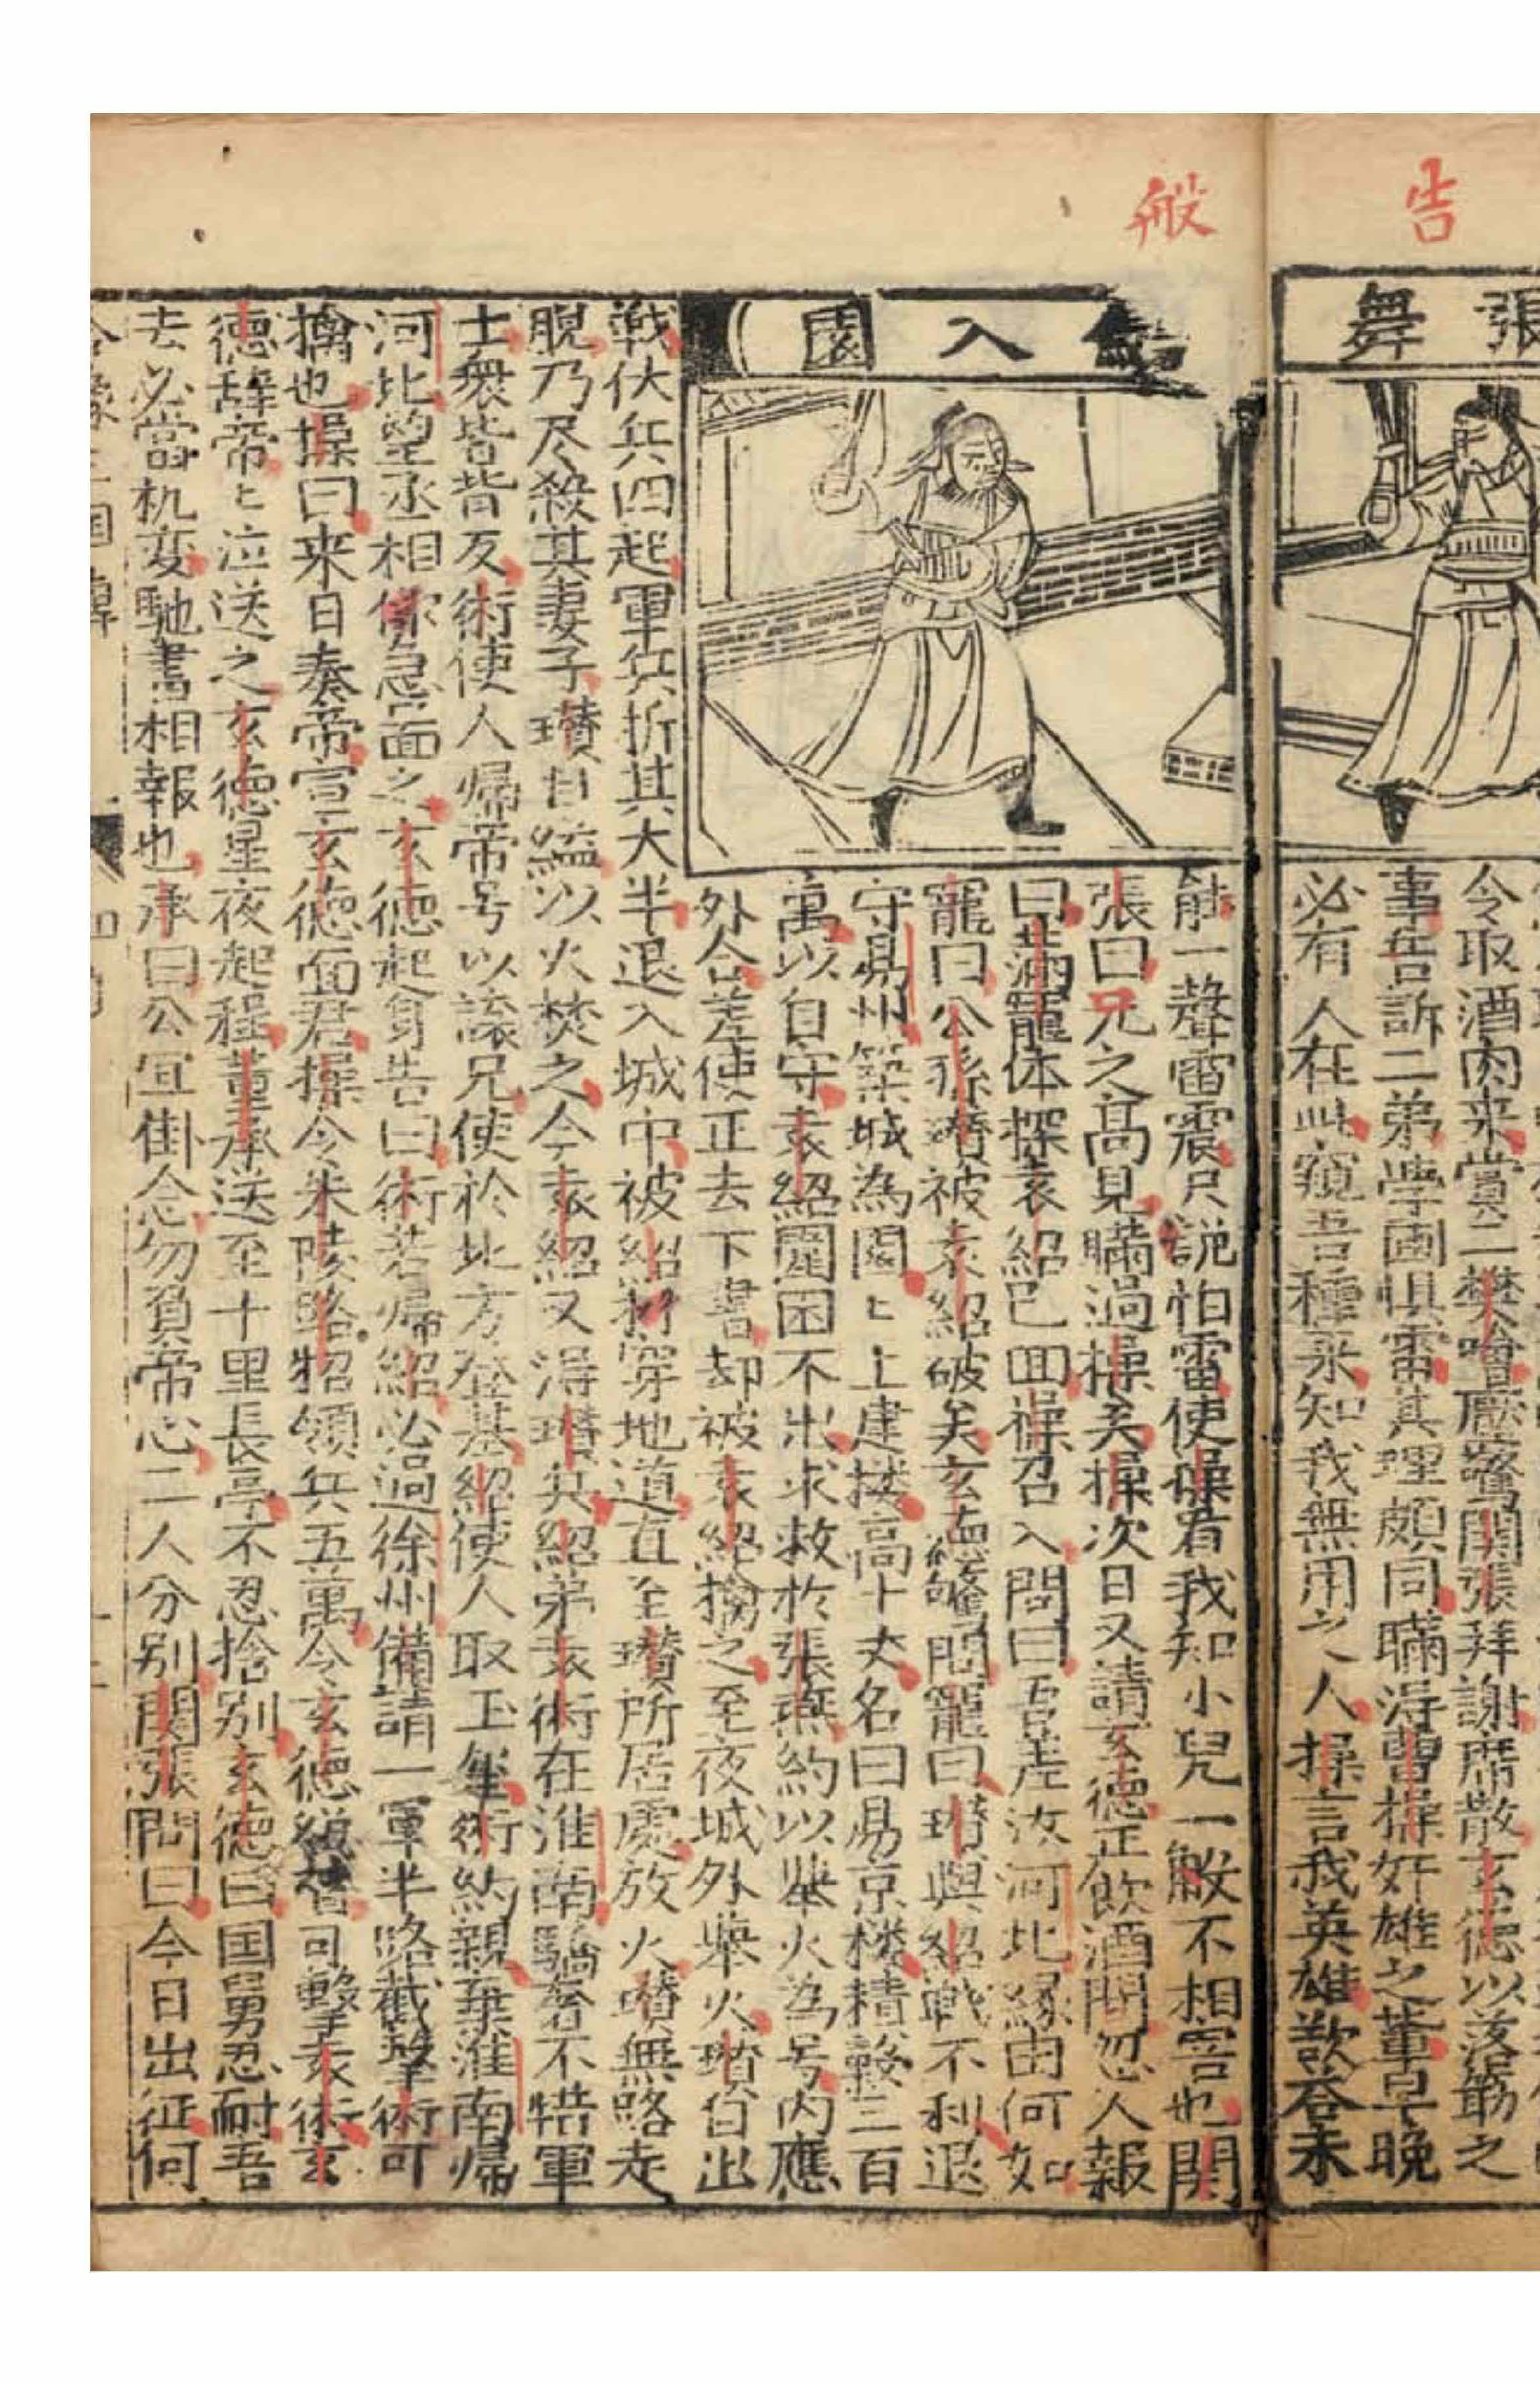 告
張舞
令取酒內來賞二樊噲壓驚関張拜謝席散玄德以落筯之
事告訴二弟學圃惧雷其理頗同瞞得曹操奸雄之輩早晚
必有人在此窺吾種菜知我無用之人操言我英雄欲吞未
般
劍入園
能一聲雷震只說怕雷使操看我如小兒一般不相害也関
張曰兄之高見瞞過操矣操次日又請玄德正飲酒間忽人報
曰滿寵体探袁紹已回操召入問曰吾差汝河北緣由何如
寵曰公孫瓚被袁紹破矣玄德驚問寵曰瓚與紹戰不利退
守易州築城為圈匕上建楼高十丈名曰易京楼積穀三百
萬以自守袁紹圍困不出求救於張燕約以舉火為号內應
外合差使正去下書却被袁紹擒之至夜城外舉火瓚自出
戰伏兵四起軍兵折其大半退入城中被紹穿地道直至瓚所居處放火瓚無路走
脫乃尽殺其妻子瓚自縊以火焚之今袁紹又得瓚兵紹弟袁術在淮南驕奢不惜軍
士衆皆背反術使人歸帝号以讓兄使於北方登基紹使人取玉璽術約親棄淮南歸
河北望丞相作急啚之玄德起身告曰術若歸紹必過徐州備請一軍半路截擊術可
擒也操曰来日奏帝宣玄德面君操令朱陵路招領兵五萬令玄德總督司擊袁術玄
德辞帝匕泣送之玄德星夜起程董承送至十里長亭不忍捨別玄德曰国舅忍耐吾
去必當机变馳書相報也承曰公宜掛念勿負帝心二人分别関張問曰今日出征何